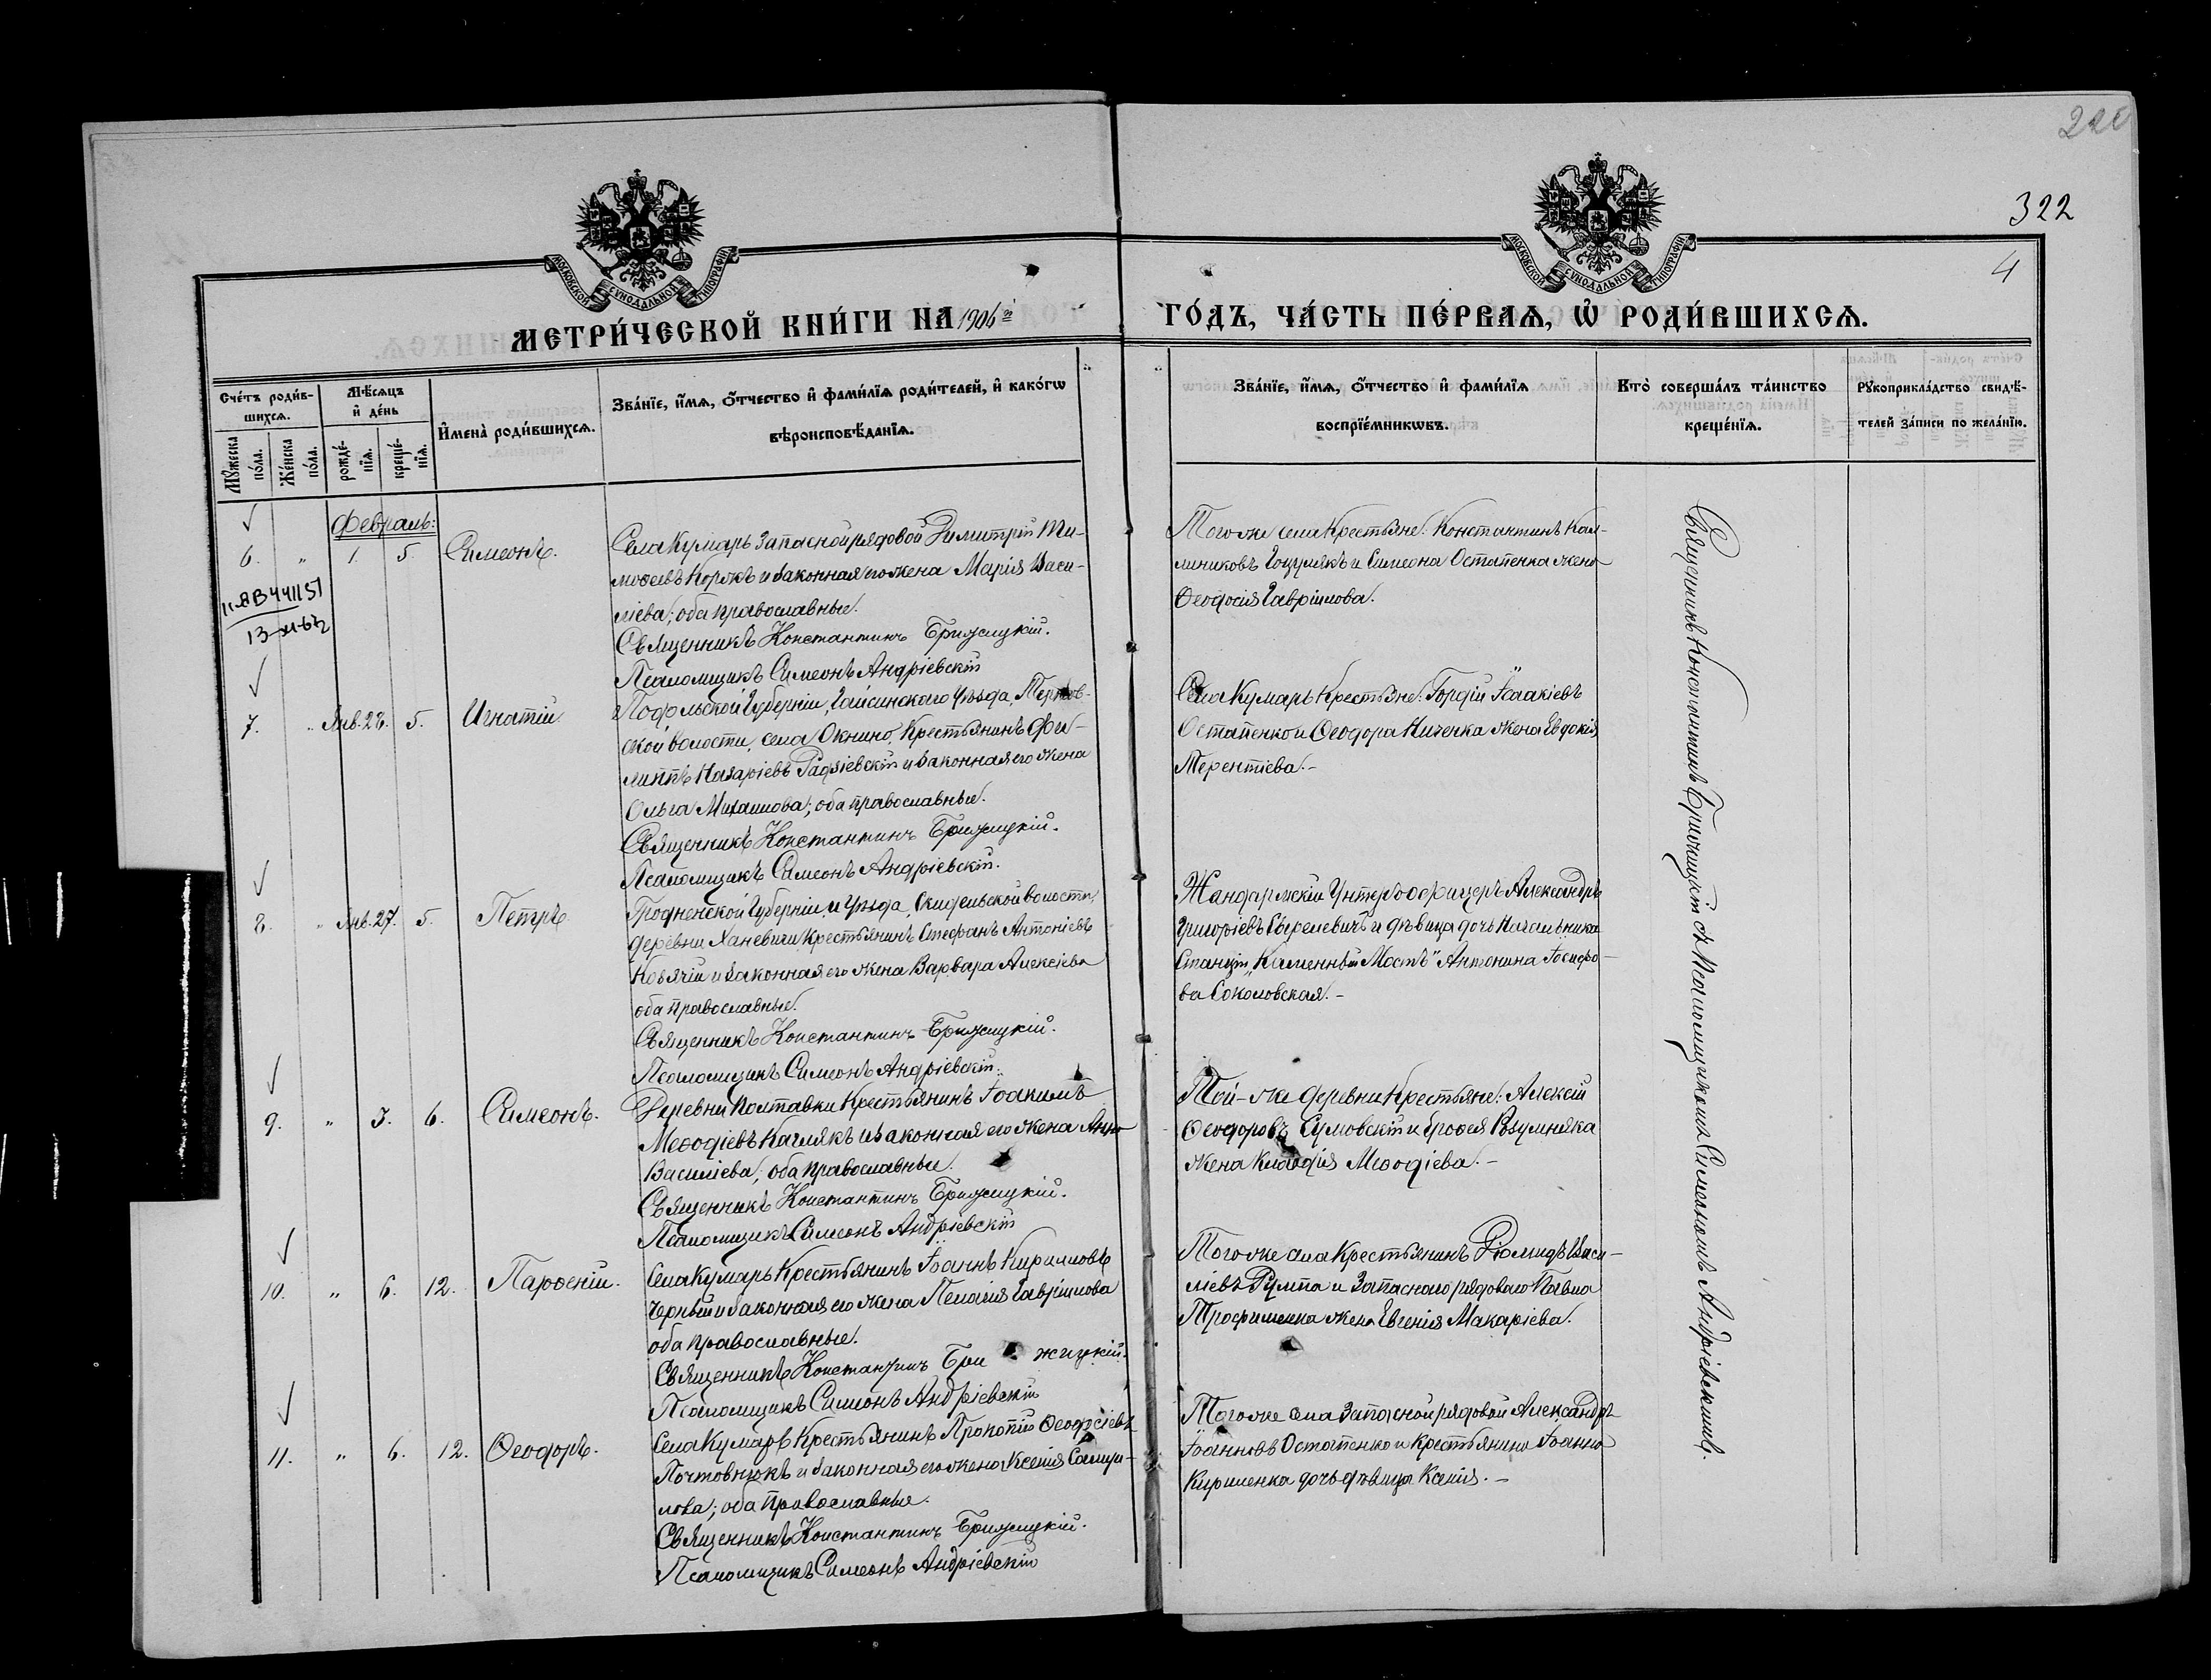 322
4
МОСКОВСКОЙ СѴНОДАЛЬНОЙ ТИПОГРАФІИ
МОСКОВСКОЙ СѴНОДАЛЬНОЙ ТИПОГРАФІИ
МЕТРИ́ЧЕСКОЙ КНИ́ГИ НА 1906й
ГО́ДЪ, ЧА́СТЬ ПЕ́РВАѦ, Ѡ҆ РОДИ́ВШИХСѦ.
Сче́тъ роди́в-
шихсѧ.
Мꙋ́жеска по́ла.
Же́нска по́ла.
Мѣ́сѧцъ
и҆ де́нь
рожде́-
нїѧ.
креще́-
нїѧ.
И҆мена̀ роди́вшихсѧ.
Зва́нїе, и҆́мѧ, ѻ҆́тчество и҆ фами́лїѧ роди́телей, и҆ како́гѡ
вѣроисповѣ́данїѧ.
Зва́нїе, и҆́мѧ, ѻ҆́тчество и҆ фами́лїѧ
воспрїе́мникѡвъ.
Кто̀ соверша́лъ та́инство
креще́нїѧ.
Рꙋкоприкла́дство свидѣ́-
телей за́писи по жела́нїю.
Февраль:
6. " 1. 5. Симеонъ.
Села Кумарь запасной рядовой Димитрій Ти-
моѳеевъ Коржъ и законная его жена Марія Васи-
ліева; оба православные.
Священникъ Константинъ Брижицкій.
Псаломщикъ Симеонъ Андріевскій
Того же села Крестьяне: Константинъ Кал-
линиковъ Гоцулякъ и Симеона Остапенка жена
Ѳеодосія Гавріилова.
13-XI-62
7. " Янв. 28. 5. Игнатій
Подольской Губерніи, Гайсинскаго Уѣзда,
ской волости, села Окнино, Крестьянинъ Фи-
липпъ Назаріевъ Радзіевскій и законная его жена
Ольга Михаилова; оба православные.
Священникъ Константинъ Брижицкій.
Псаломщикъ Симеонъ Андріевскій.
Села Кумарь Крестьяне: Гордій Ісаакіевъ
Остапенко и Ѳеодора Ниченка жена Евдокія
Терентіева.-
8. " Янв. 27. 5. Петръ
Гродненской Губерніи и Уѣзда, Скидельской волости,
деревни Ханевичи, Крестьянинъ Стефанъ Антоніевъ
и законная его жена Варвара Алексіева
оба православные.
Священникъ Константинъ Брижицкій.
Псаломщикъ Симеонъ Андріевскій.
Жандармскій Унтеръ Офицеръ Александръ
Григоріевъ и дѣвица дочь Начальника
Станціи "Каменный Мостъ" Антонина Іосифо-
ва Соколовская.-
9. " 3. 6. Симеонъ.
Деревни Полтавки Крестьянинъ Іоакимъ
Меѳодіевъ и законная его жена Анна
Василіева; оба православные.
Священникъ Константинъ Брижицкій.
Псаломщикъ Симеонъ Андріевскій
Той-же деревни Крестьяне: Алексій
Ѳеодоровъ Сумовскій и Розумняка
жена Клавдія Меѳодіева.-
10. " 6. 12. Парѳеній.
Села Кумарь Крестьянинъ Іоаннъ Кирилловъ
Черный и законная его жена Пелагія Гавріилова
оба православные.
Священникъ Константинъ Бри жицкій.
Псаломщикъ Симеонъ Андріевскій
Того же села Крестьянинъ Діомидъ Васи-
ліевъ и Запаснаго рядоваго Павла
Трофименка жена Евгенія Макаріева.
11. " 6. 12. Ѳеодоръ.
Села Кумарь Крестьянинъ Прокопій Ѳеодосіевъ
Почтовнюкъ и законная его жена Ксенія Самуи-
лова; оба православные.
Священникъ Константинъ Брижицкій.
Псаломщикъ Симеонъ Андріевскій
Того же села Запасной рядовой Александръ
Іоанновъ Остапенко и Крестьянина Іоанна
Кириленка дочь дѣвица Ксенія.-
Священникъ Константинъ Брижицкій съ Псаломщикомъ Симеономъ Андріевскимъ.